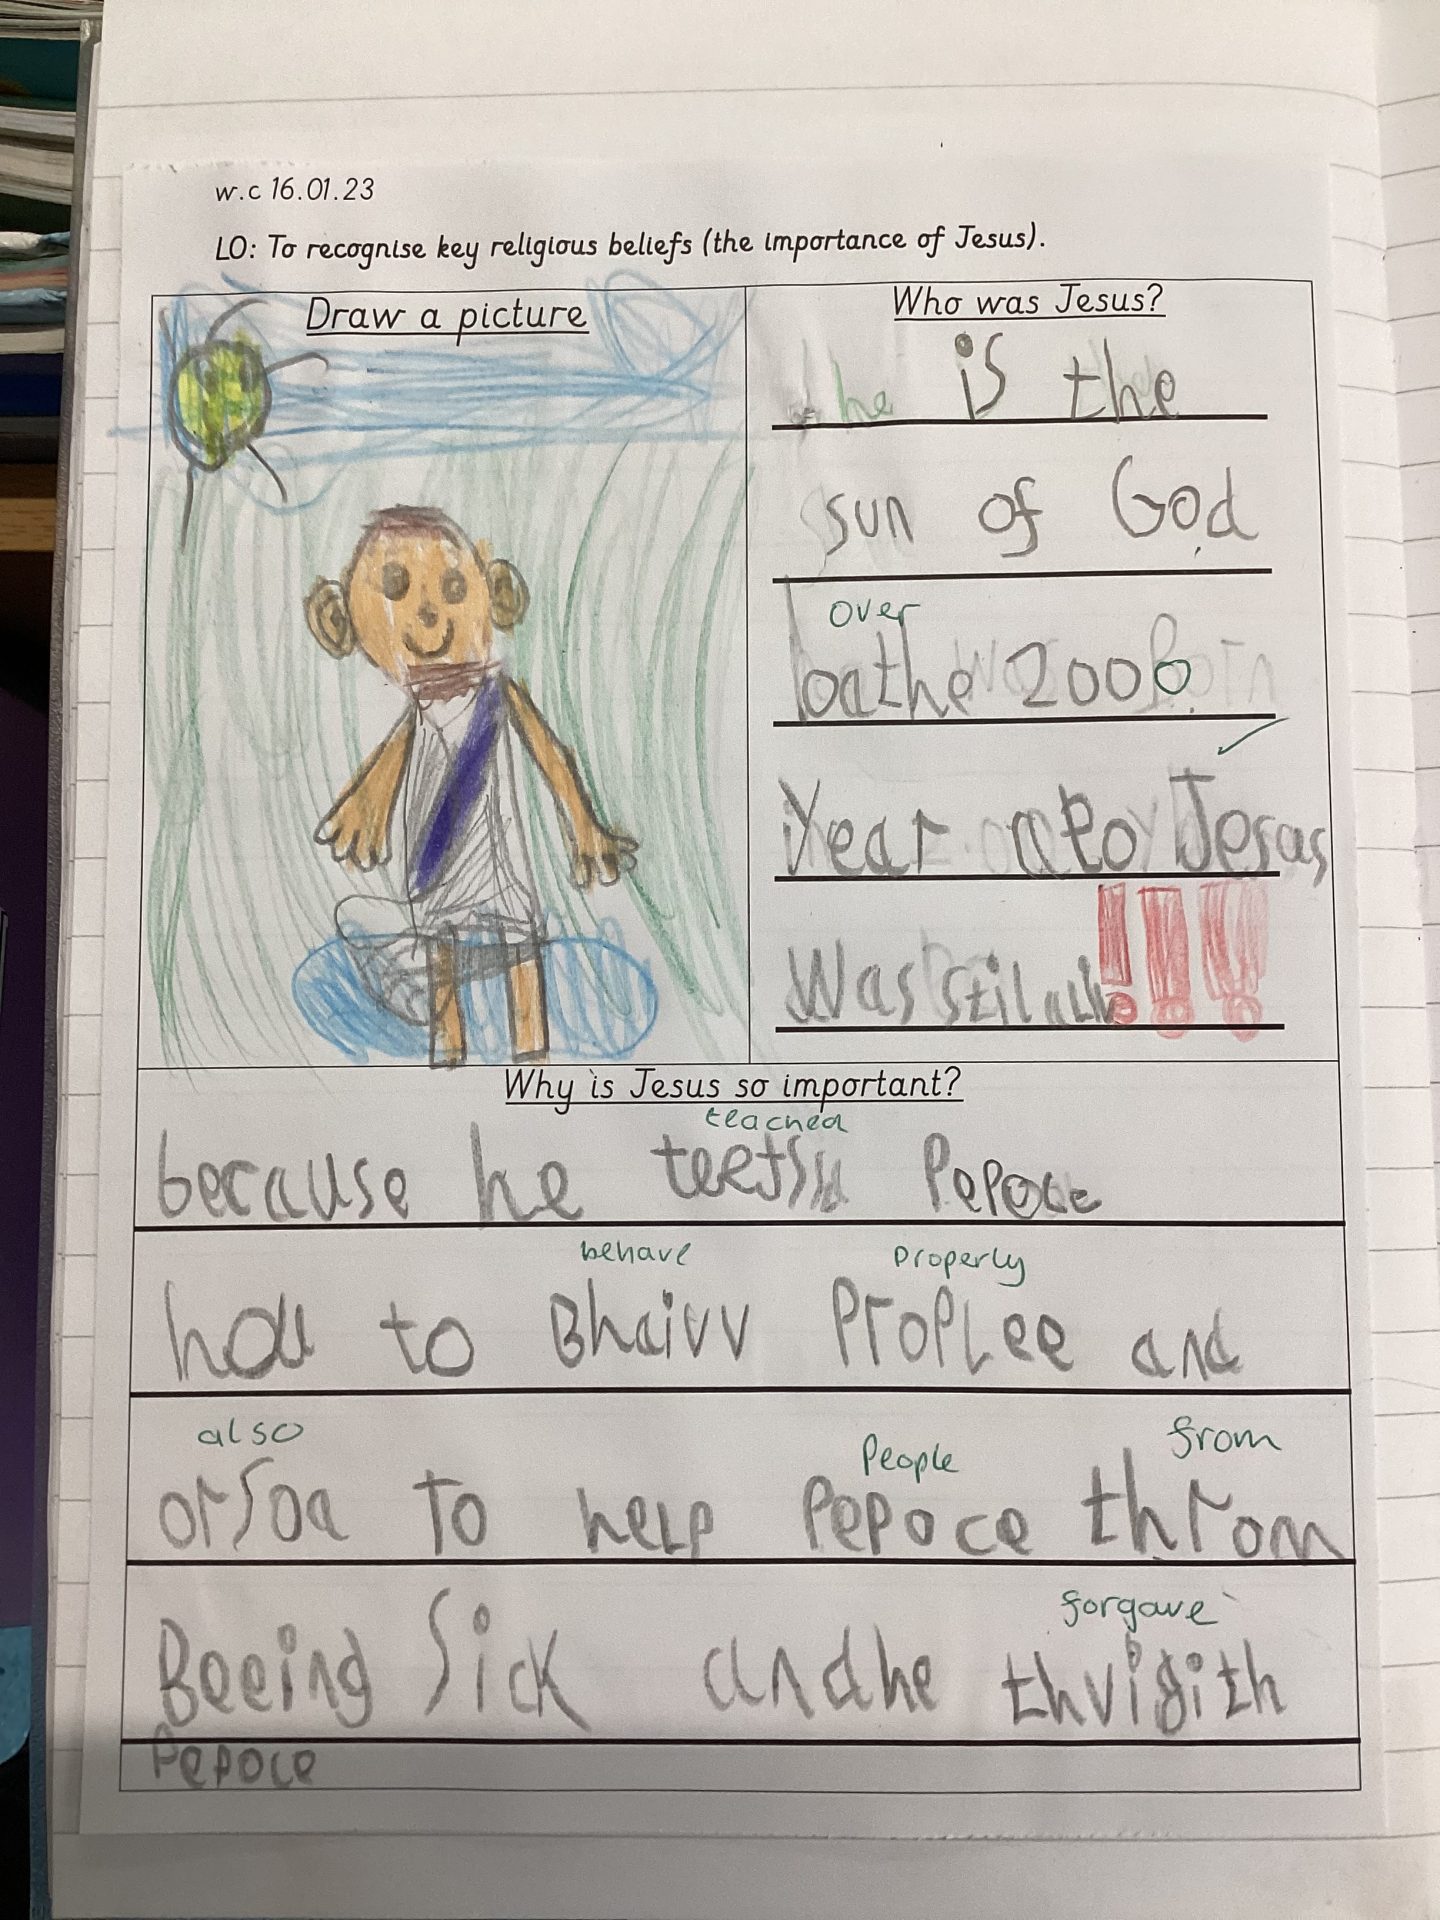 w.c 16.01.23
LO: To recognise key religious beliefs (the importance of Jesus).
Draw a picture
Who was Jesus?
he is the
sun of God
over
2000
Year Jesas
was stil
Why is Jesus so important?
teached
because he Pepoce
behave properly
how to Bhaivv ProPLee and
also People from
orsoa To help Pepoce throm
forgave
Beeing Sick and he thvigith
Pepoce